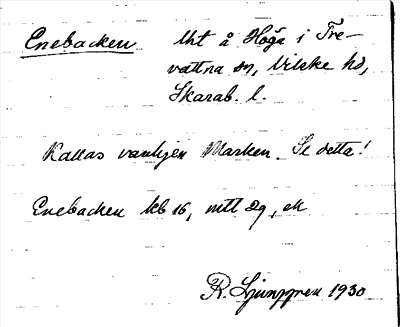 Enebacken Uht å Höga i Tre-
vattna sn, Vilske hd,
Skarab. l.
Kallas vanligen Marken. Se detta!
Enebacken kb 16, mitt Dg, ek
R. Ljunggren 1930